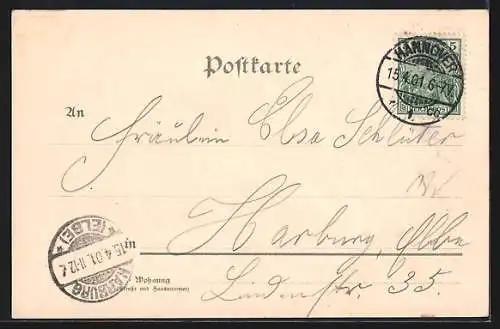 HANNOVER
15.4.01.6-7N.
1
5
Postkarte
An
Fräulein Elsa Schlüter
Harburg, Elbe
in
Lindenstr. 35.
Wohnung
(Straße und Hausnummer)
HARBURG
15.4.01. 11-12
* (ELBE) *